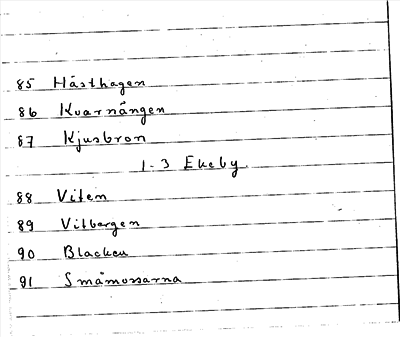 85 Hästhagen
86 Kvarnängen
87 Kjusbron
1-3 Ekeby.
88 Viten
89 Vitbergen
90 Blacken
91 Småmossarna